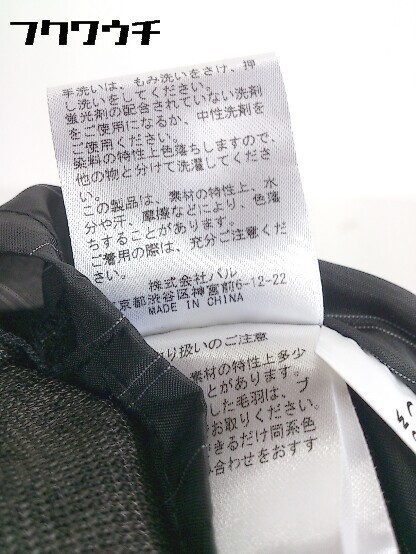 フクワウチ
手洗いは、もみ洗いをさけ、押
し洗いをしてください。
蛍光剤の配合されていない洗剤
をご使用になるか、中性洗剤を
ご使用ください。
染料の特性上色落ちしますので、
他の物と分けて洗濯してくださ
い。
この製品は、素材の特性上、水
分や汗、摩擦などにより、色落
ちすることがあります。
ご着用の際は、充分ご注意くだ
さい。
株式会社パル
京都渋谷区神宮前6-12-22
MADE IN CHINA
り扱いのご注意
素材の特性上多少
とがあります。
した毛羽は、ブ
お取りください。
きるだけ同系色
み合わせをおすす